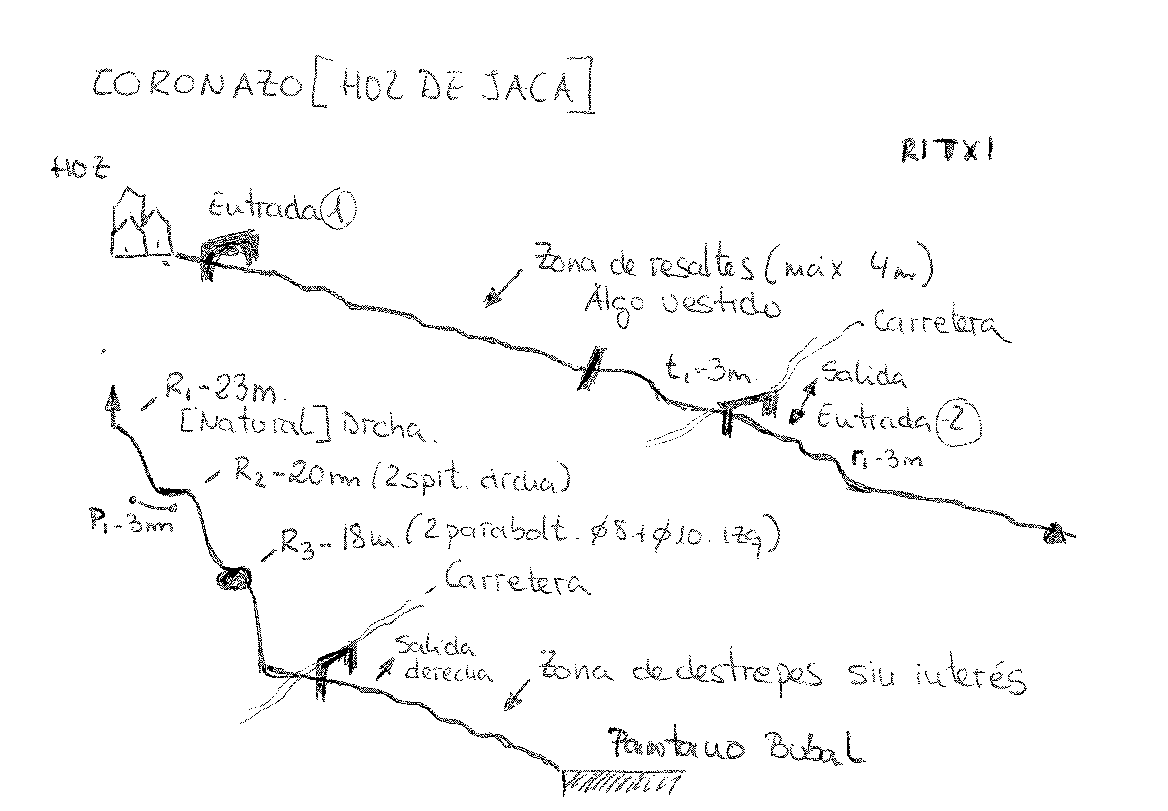 CORONAZO [HOZ DE JACA]
RITXI
HOZ
Entrada 1
Zona de resaltes (máx 4m)
Algo vestido
Carretera
t1-3m.
Salida
Entrada 2
r1-3m
R1-23m.
[Natural] Drcha.
R2-20m (2 spit. drcha)
P1-3m
R3-18m. (2 parabolt. ø8+ø10. izq)
Carretera
Salida
derecha
Zona de destrepes sin interés
Pantano Bubal